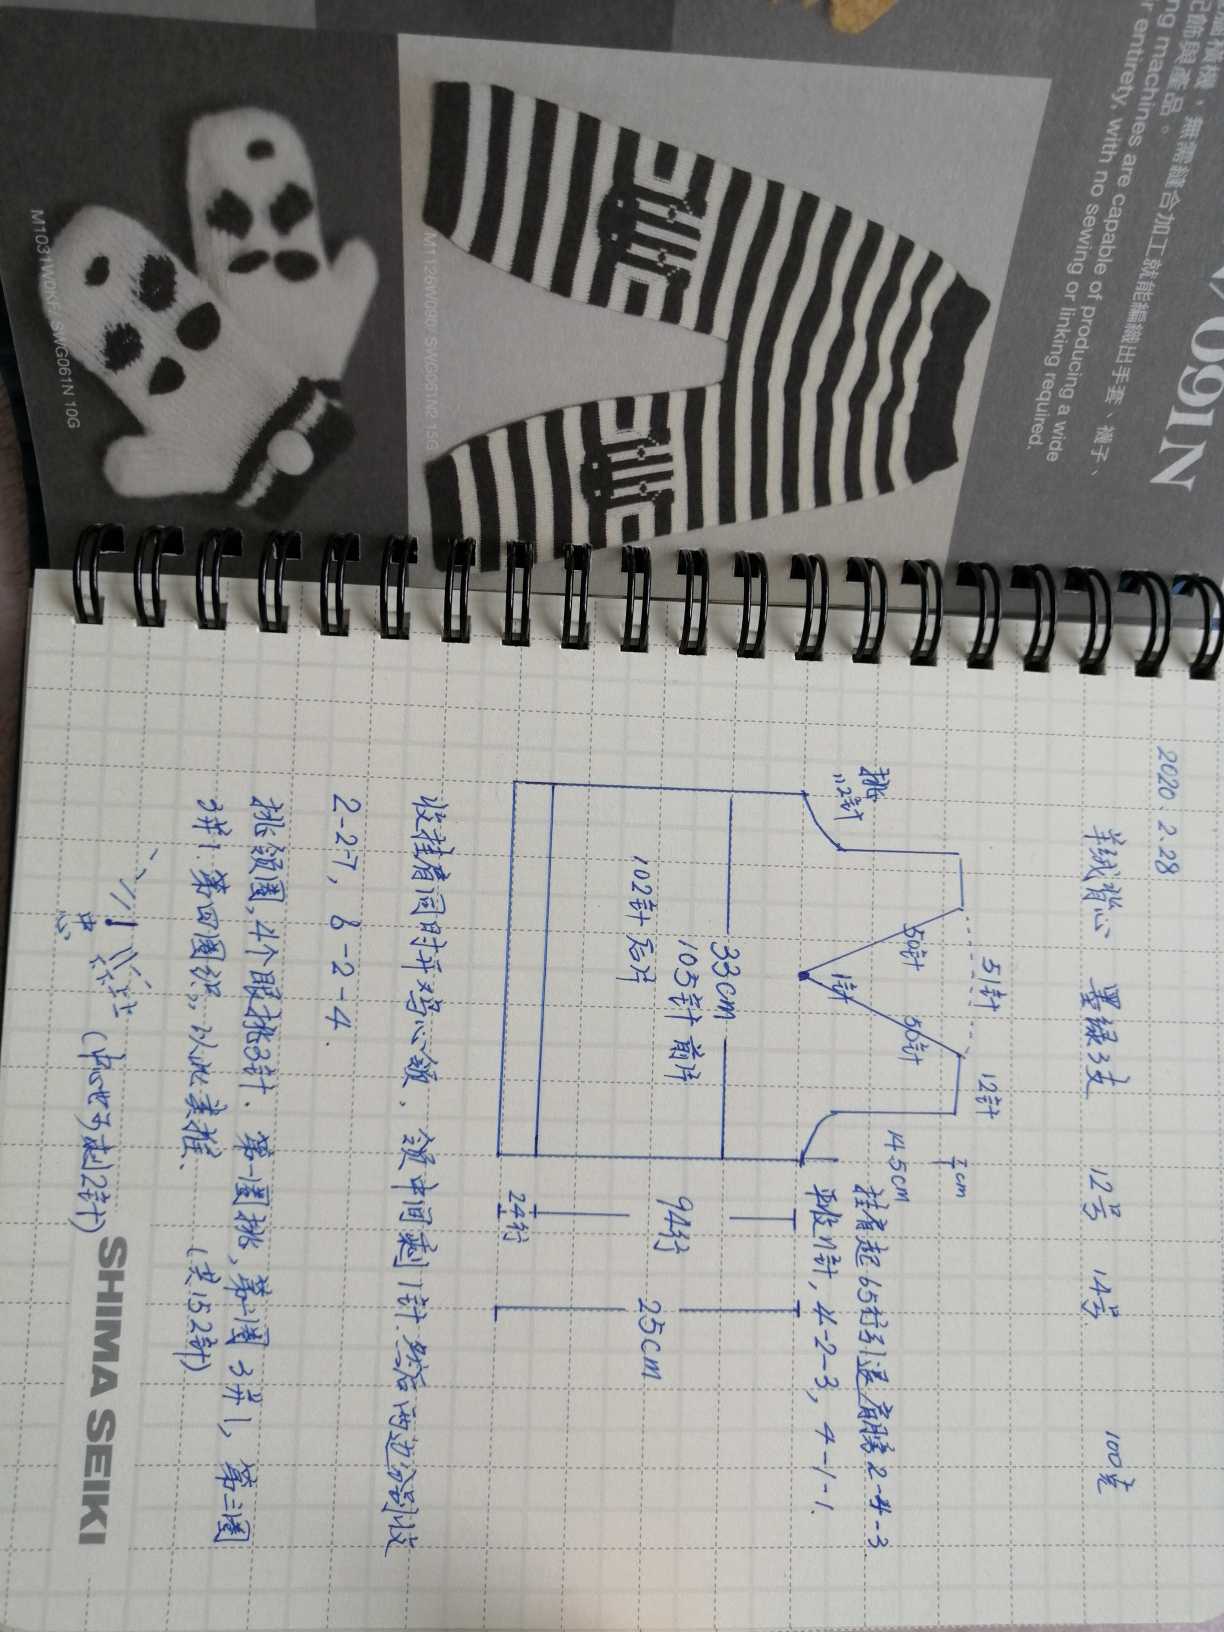 09IN
編橫機,無需縫合加工就能編織出手套、襪子、
配飾與產品。
ng machines are capable of producing a wide
r entirety, with no sewing or linking required.
M1126W090 SWG061N2 15G
M1031W0KF SWG061N 10G
2020.2.28
羊絨背心 墨綠3支 12号 14号 100克
51針 12針
7cm
挑
112針
50針 50針
1針
14.5cm
挂肩起65行引退肩膀2-4-3
平收7針,4-2-3,4-1-1.
33cm
105針 前片
102針 后片
94行
24行
25cm
收挂肩同时开鸡心领.领中间剩1針然后两边分别收
2-2-7, 6-2-4.
挑领圈,4个眼挑3針.第一圈挑,第二圈3并1,第三圈
3并1.第四圈织,以此类推.
(共152針)
中心
(中心也可起2針)
SHIMA SEIKI